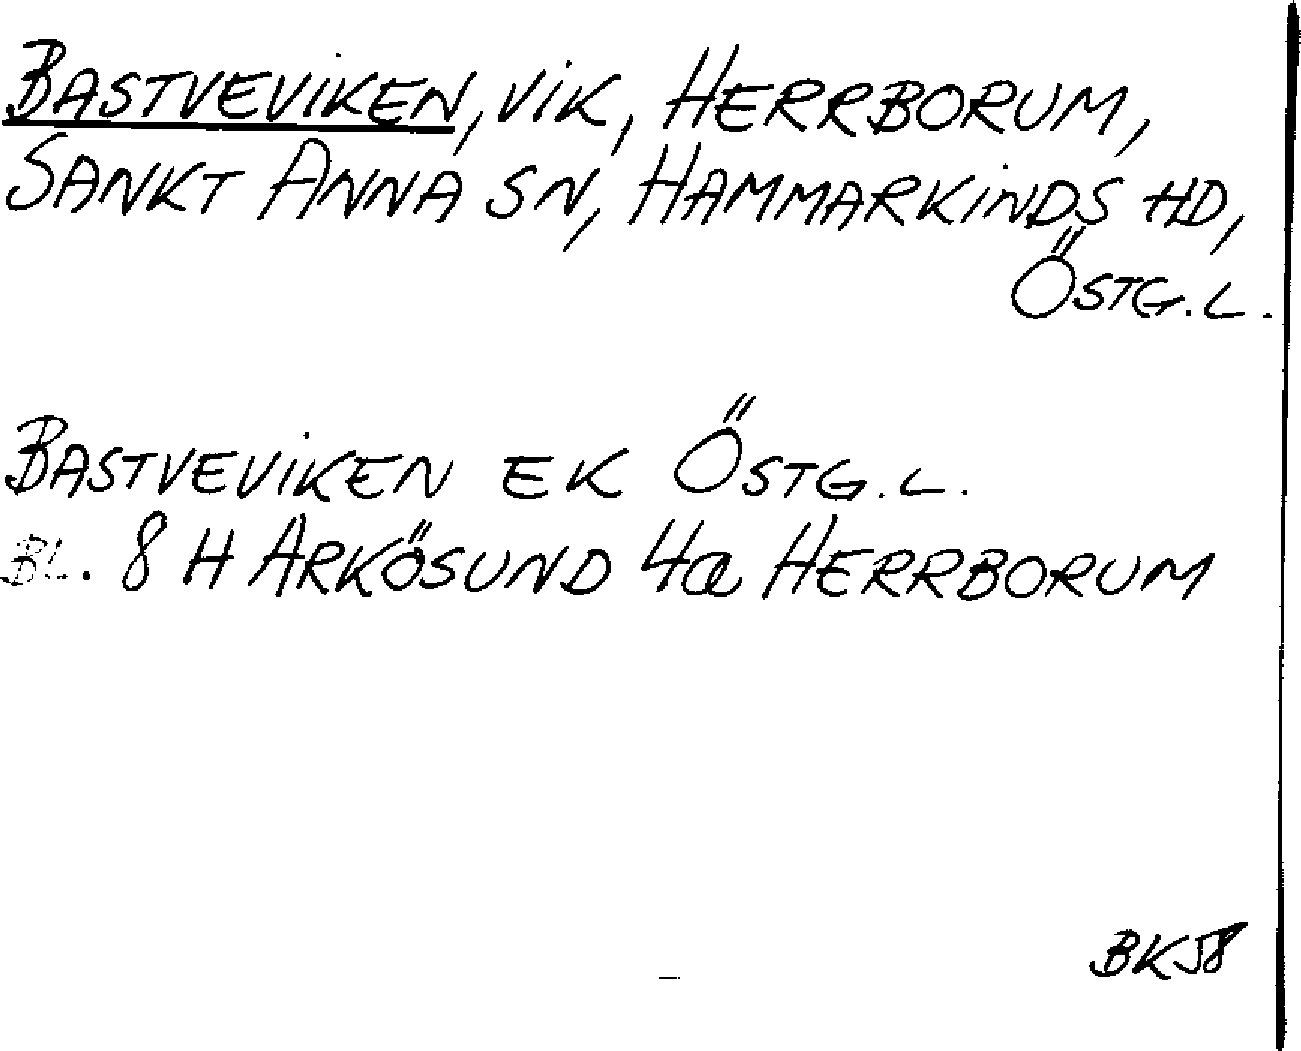 BASTVEVIKEN, VIK, HERRBORUM,
SANKT ANNA SN, HAMMARKINDS HD,
ÖSTG. L.
BASTVEVIKEN EK ÖSTG. L.
BL. 8 H ARKÖSUND 4a HERRBORUM
BK58